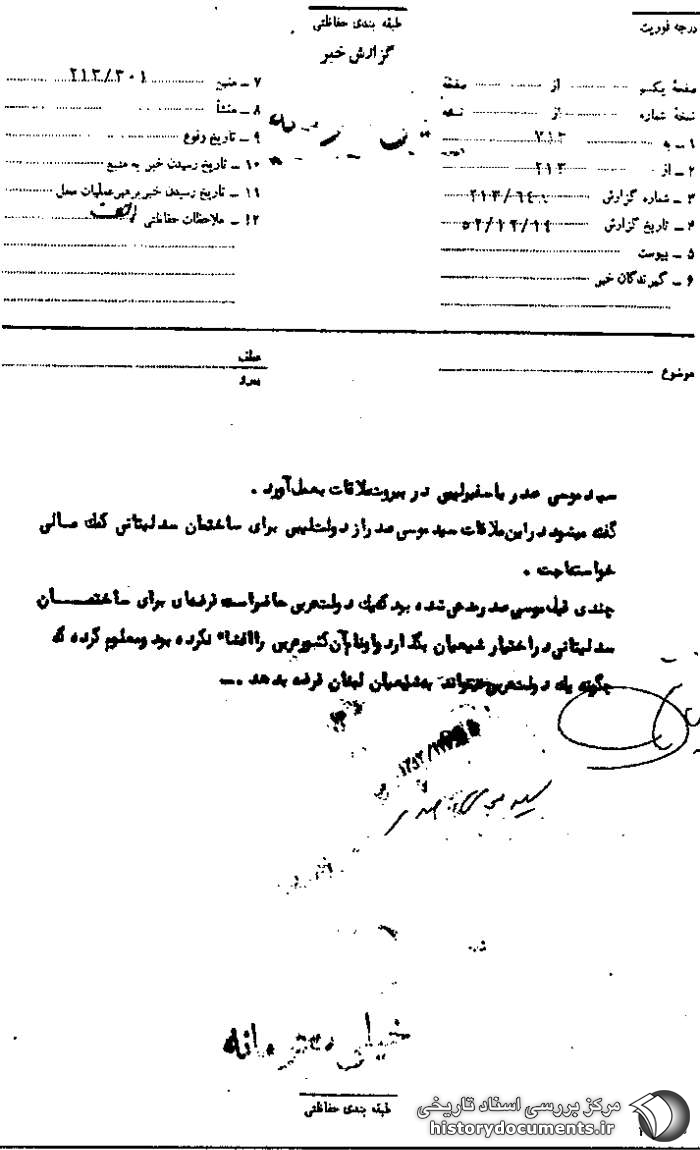 درجه فوریت
طبقه بندی حفاظتی
گزارش خبر
صفحهٔ یکم از صفحهٔ
نسخهٔ شماره از نسخه
۱ ــ به ۲۱۳
۲ ــ از ۲۱۳
۳ ــ شماره گزارش
۴ ــ تاریخ گزارش
۵ ــ پیوست
۶ ــ گیرندگان خبر
۷ ــ منبع ۲۱۳/۳۰۱
۸ ــ منشأ
۹ ــ تاریخ وقوع
۱۰ ــ تاریخ رسیدن خبر به منبع
۱۱ ــ تاریخ رسیدن خبر برهبر عملیات محل
۱۲ ــ ملاحظات حفاظتی
موضوع
عطف
سید موسی صدر با سفیر لیبی در بیروت ملاقات بعمل آورد .
گفته میشود در این ملاقات سید موسی صدر از دولت لیبی برای ساختمان سد لیتانی کمک مالی
خواسته است .
چندی قبل موسی صدر مدعی شده بود که یک دولت عربی حاضر است قرضه‌ای برای ساختمان
سد لیتانی در اختیار شیعیان بگذارد و او نام آن کشور عربی را افشاء نکرده بود و معلوم نکرده که
چگونه یک دولت عربی میتواند به شیعیان لبنان قرضه بدهد .ــ
سید موسی صدر
خیلی محرمانه
طبقه بندی حفاظتی
مرکز بررسی اسناد تاریخی
historydocuments.ir